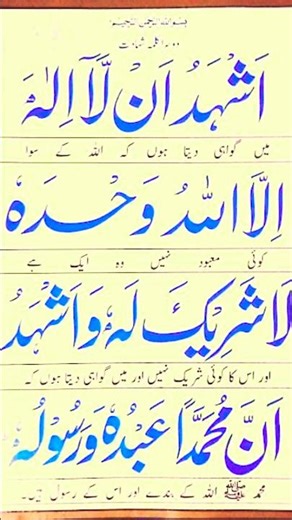 بِسْمِ اللهِ الرَّحْمٰنِ الرَّحِيْمِ
دوسرا کلمہ شہادت
اَشْهَدُ اَنْ لَّاۤ اِلٰهَ
میں گواہی دیتا ہوں کہ اللہ کے سوا
اِلَّا اللّٰهُ وَحْدَهٗ
کوئی معبود نہیں وہ ایک ہے
لَا شَرِيْكَ لَهٗ وَاَشْهَدُ
اور اس کا کوئی شریک نہیں اور میں گواہی دیتا ہوں کہ
اَنَّ مُحَمَّدًا عَبْدُهٗ وَرَسُوْلُهٗ
محمد ﷺ اللہ کے بندے اور اس کے رسول ہیں۔